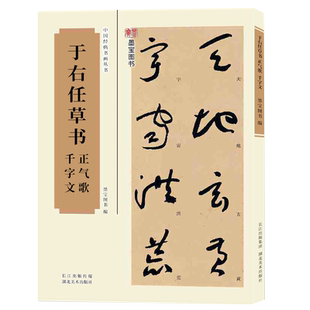 中国经典书画丛书
于右任草书
正气歌
千字文
墨宝图书 编
长江出版传媒
湖北美术出版社
墨宝图书
天地玄黄
宇宙洪荒
于右任草书 正气歌 千字文
墨宝图书 编
长江出版传媒
湖北美术出版社